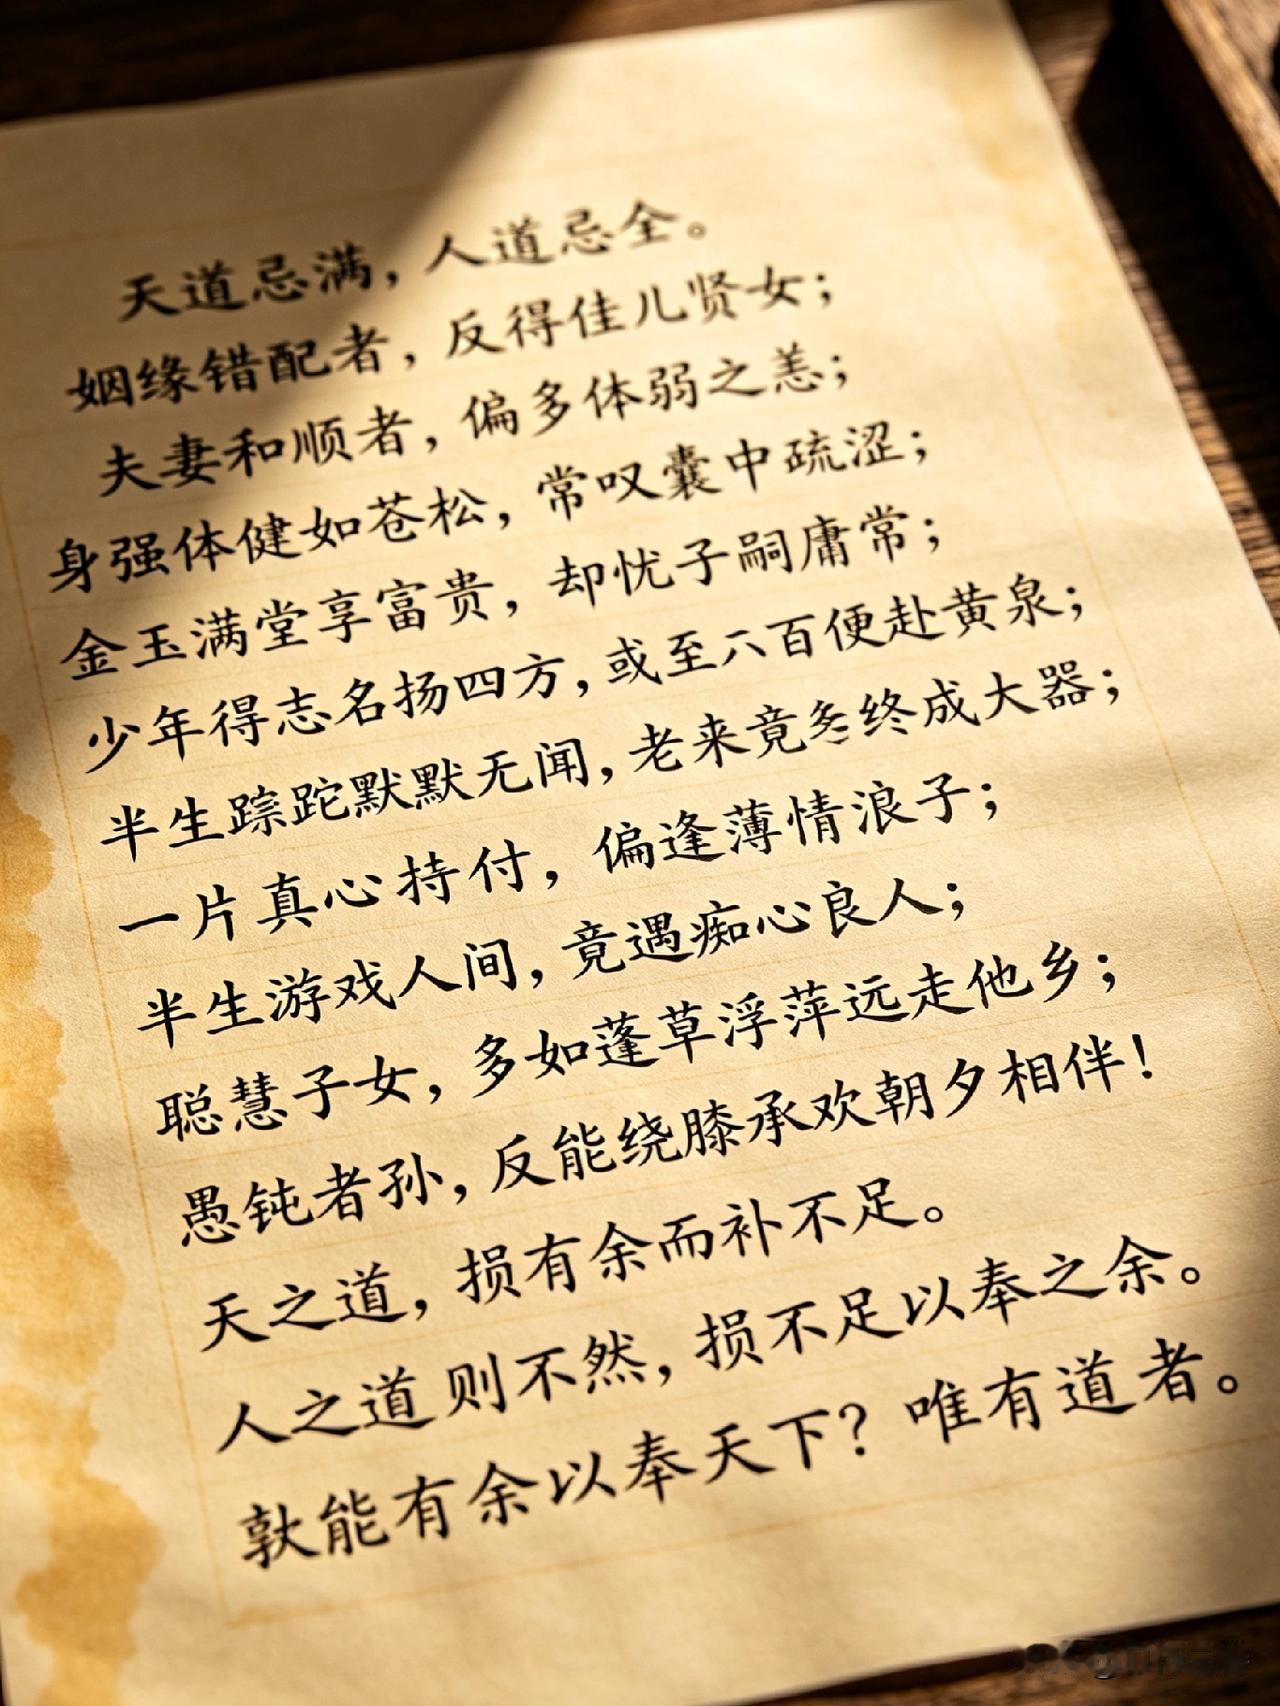 天道忌满，人道忌全。
姻缘错配者，反得佳儿贤女；
夫妻和顺者，偏多体弱之恙；
身强体健如苍松，常叹囊中疏涩；
金玉满堂享富贵，却忧子嗣庸常；
少年得志名扬四方，或至六百便赴黄泉；
半生踪跎默默无闻，老来竟终成大器；
一片真心持付，偏逢薄情浪子；
半生游戏人间，竟遇痴心良人；
聪慧子女，多如蓬草浮萍远走他乡；
愚钝者孙，反能绕膝承欢朝夕相伴！
天之道，损有余而补不足。
人之道则不然，损不足以奉之余。
敦能有余以奉天下？唯有道者。